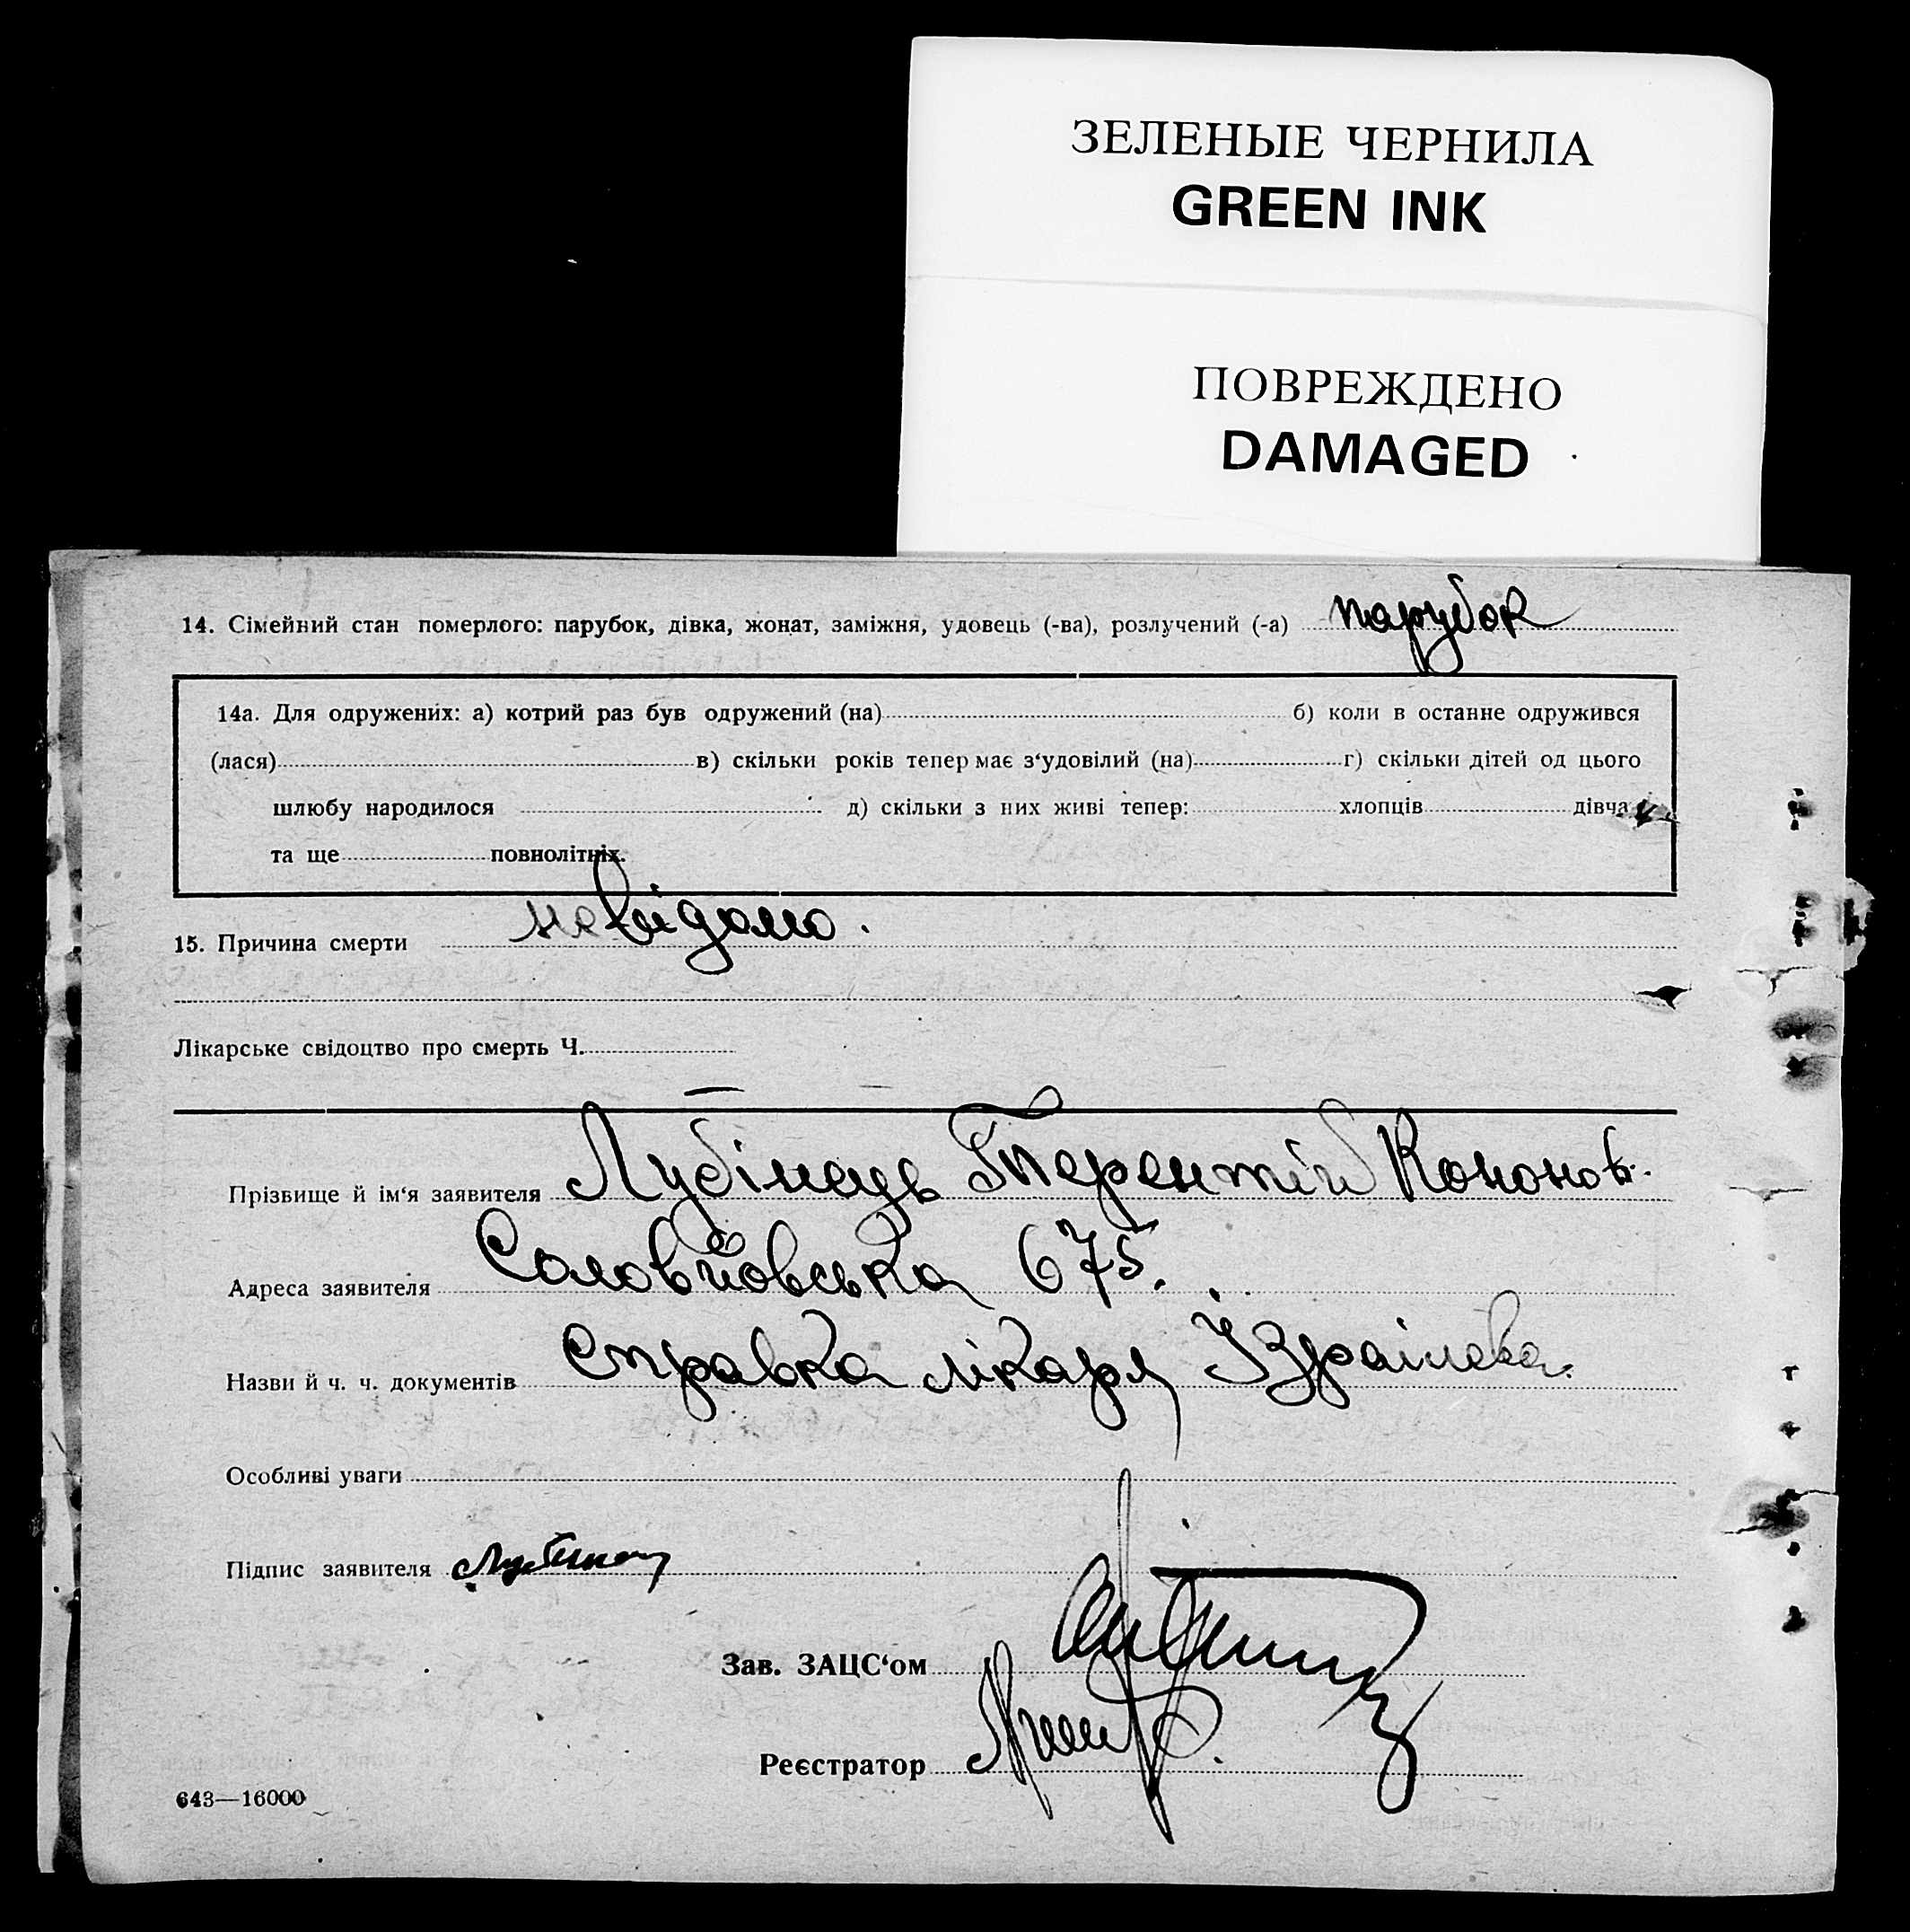 ЗЕЛЕНЫЕ ЧЕРНИЛА
GREEN INK
ПОВРЕЖДЕНО
DAMAGED
14. Сімейний стан померлого: парубок, дівка, жонат, заміжня, удовець (-ва), розлучений (-а) парубок
14а. Для одружених: а) котрий раз був одружений (на) б) коли в останне одружився
(лася) в) скільки років тепер має з‘удовілий (на) г) скільки дітей од цього
шлюбу народилося д) скільки з них живі тепер: хлопців дівча
та ще повнолітніх.
15. Причина смерти невідомо.
Лікарське свідоцтво про смерть Ч.
Прізвище й ім‘я заявителя Лубінець Терентій Кононов.
Адреса заявителя Соловйовська 675.
Назви й ч. ч. документів Справка лікаря Ізраілева.
Особливі уваги
Підпис заявителя
Зав. ЗАЦС‘ом
Реєстратор
643—16000